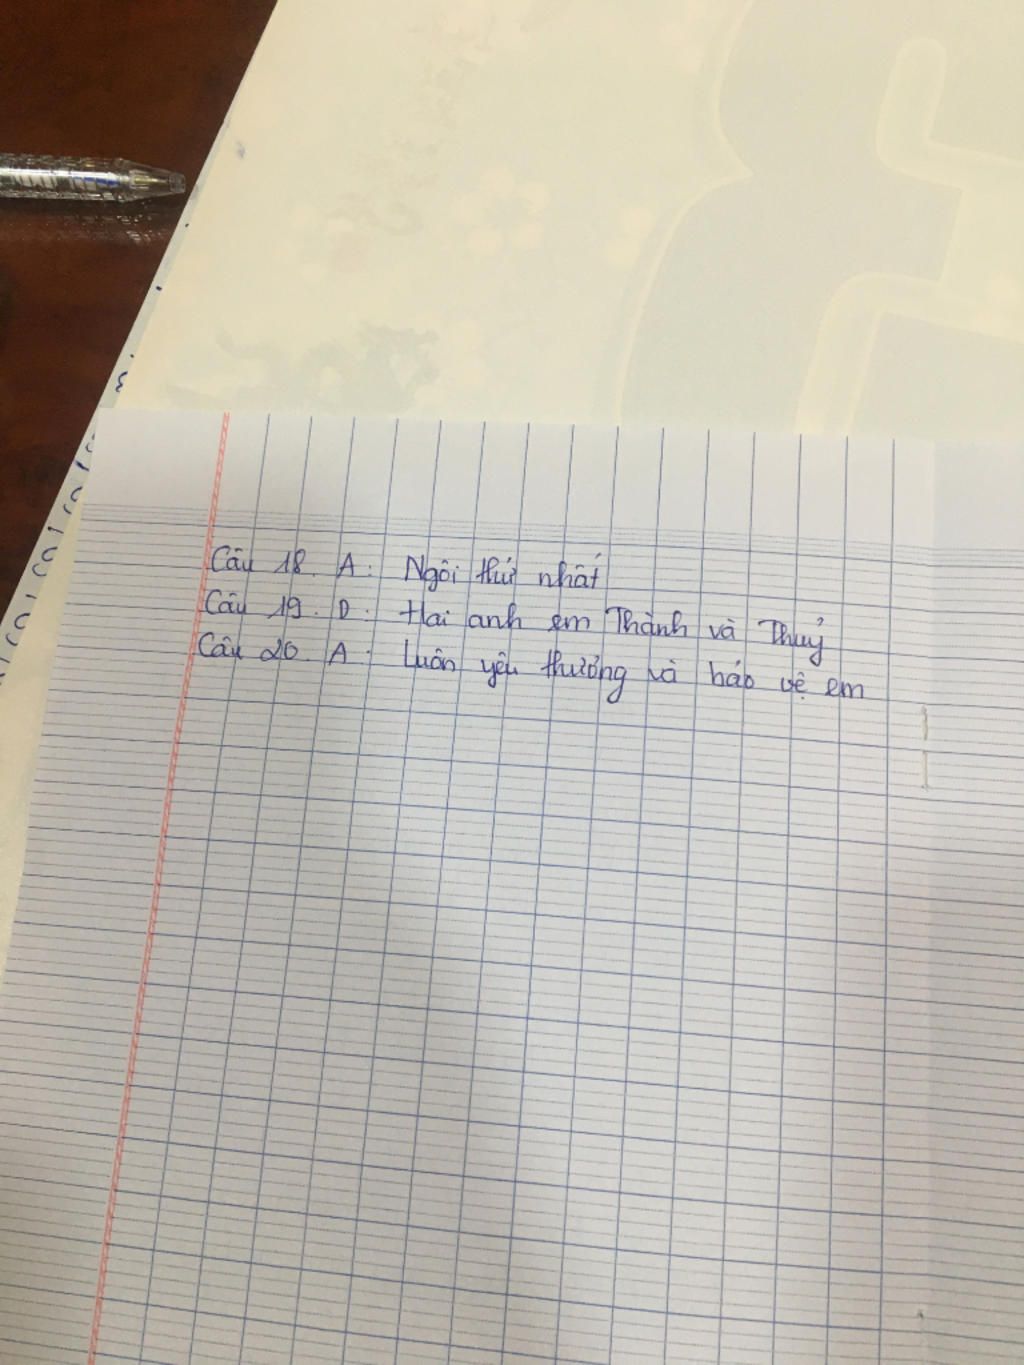 Câu 18. A: Ngôi thứ nhất
Câu 19. D: Hai anh em Thành và Thuỷ
Câu 20. A: Luôn yêu thương và bảo vệ em